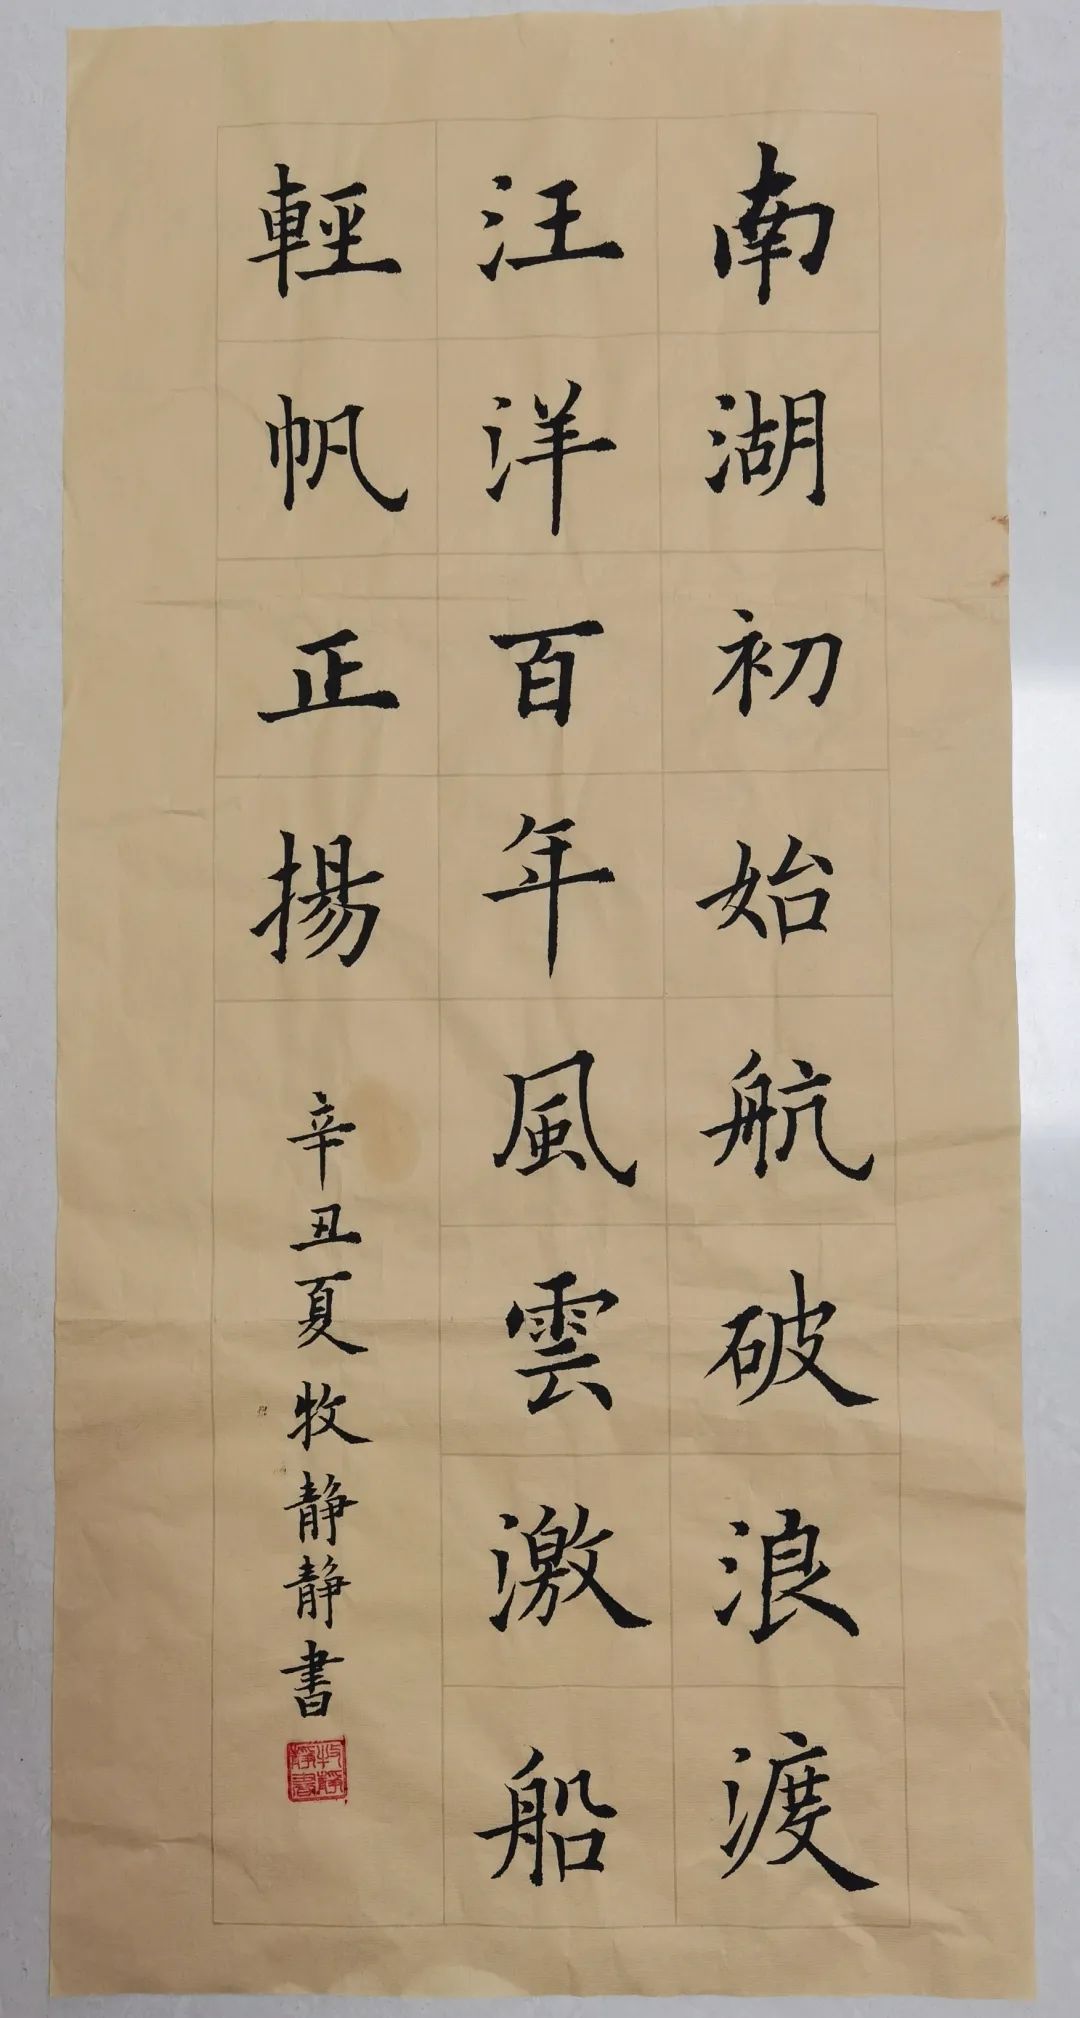 南湖初始航破浪渡
汪洋百年風雲激船
輕帆正揚
辛丑夏牧静静書
牧静静書